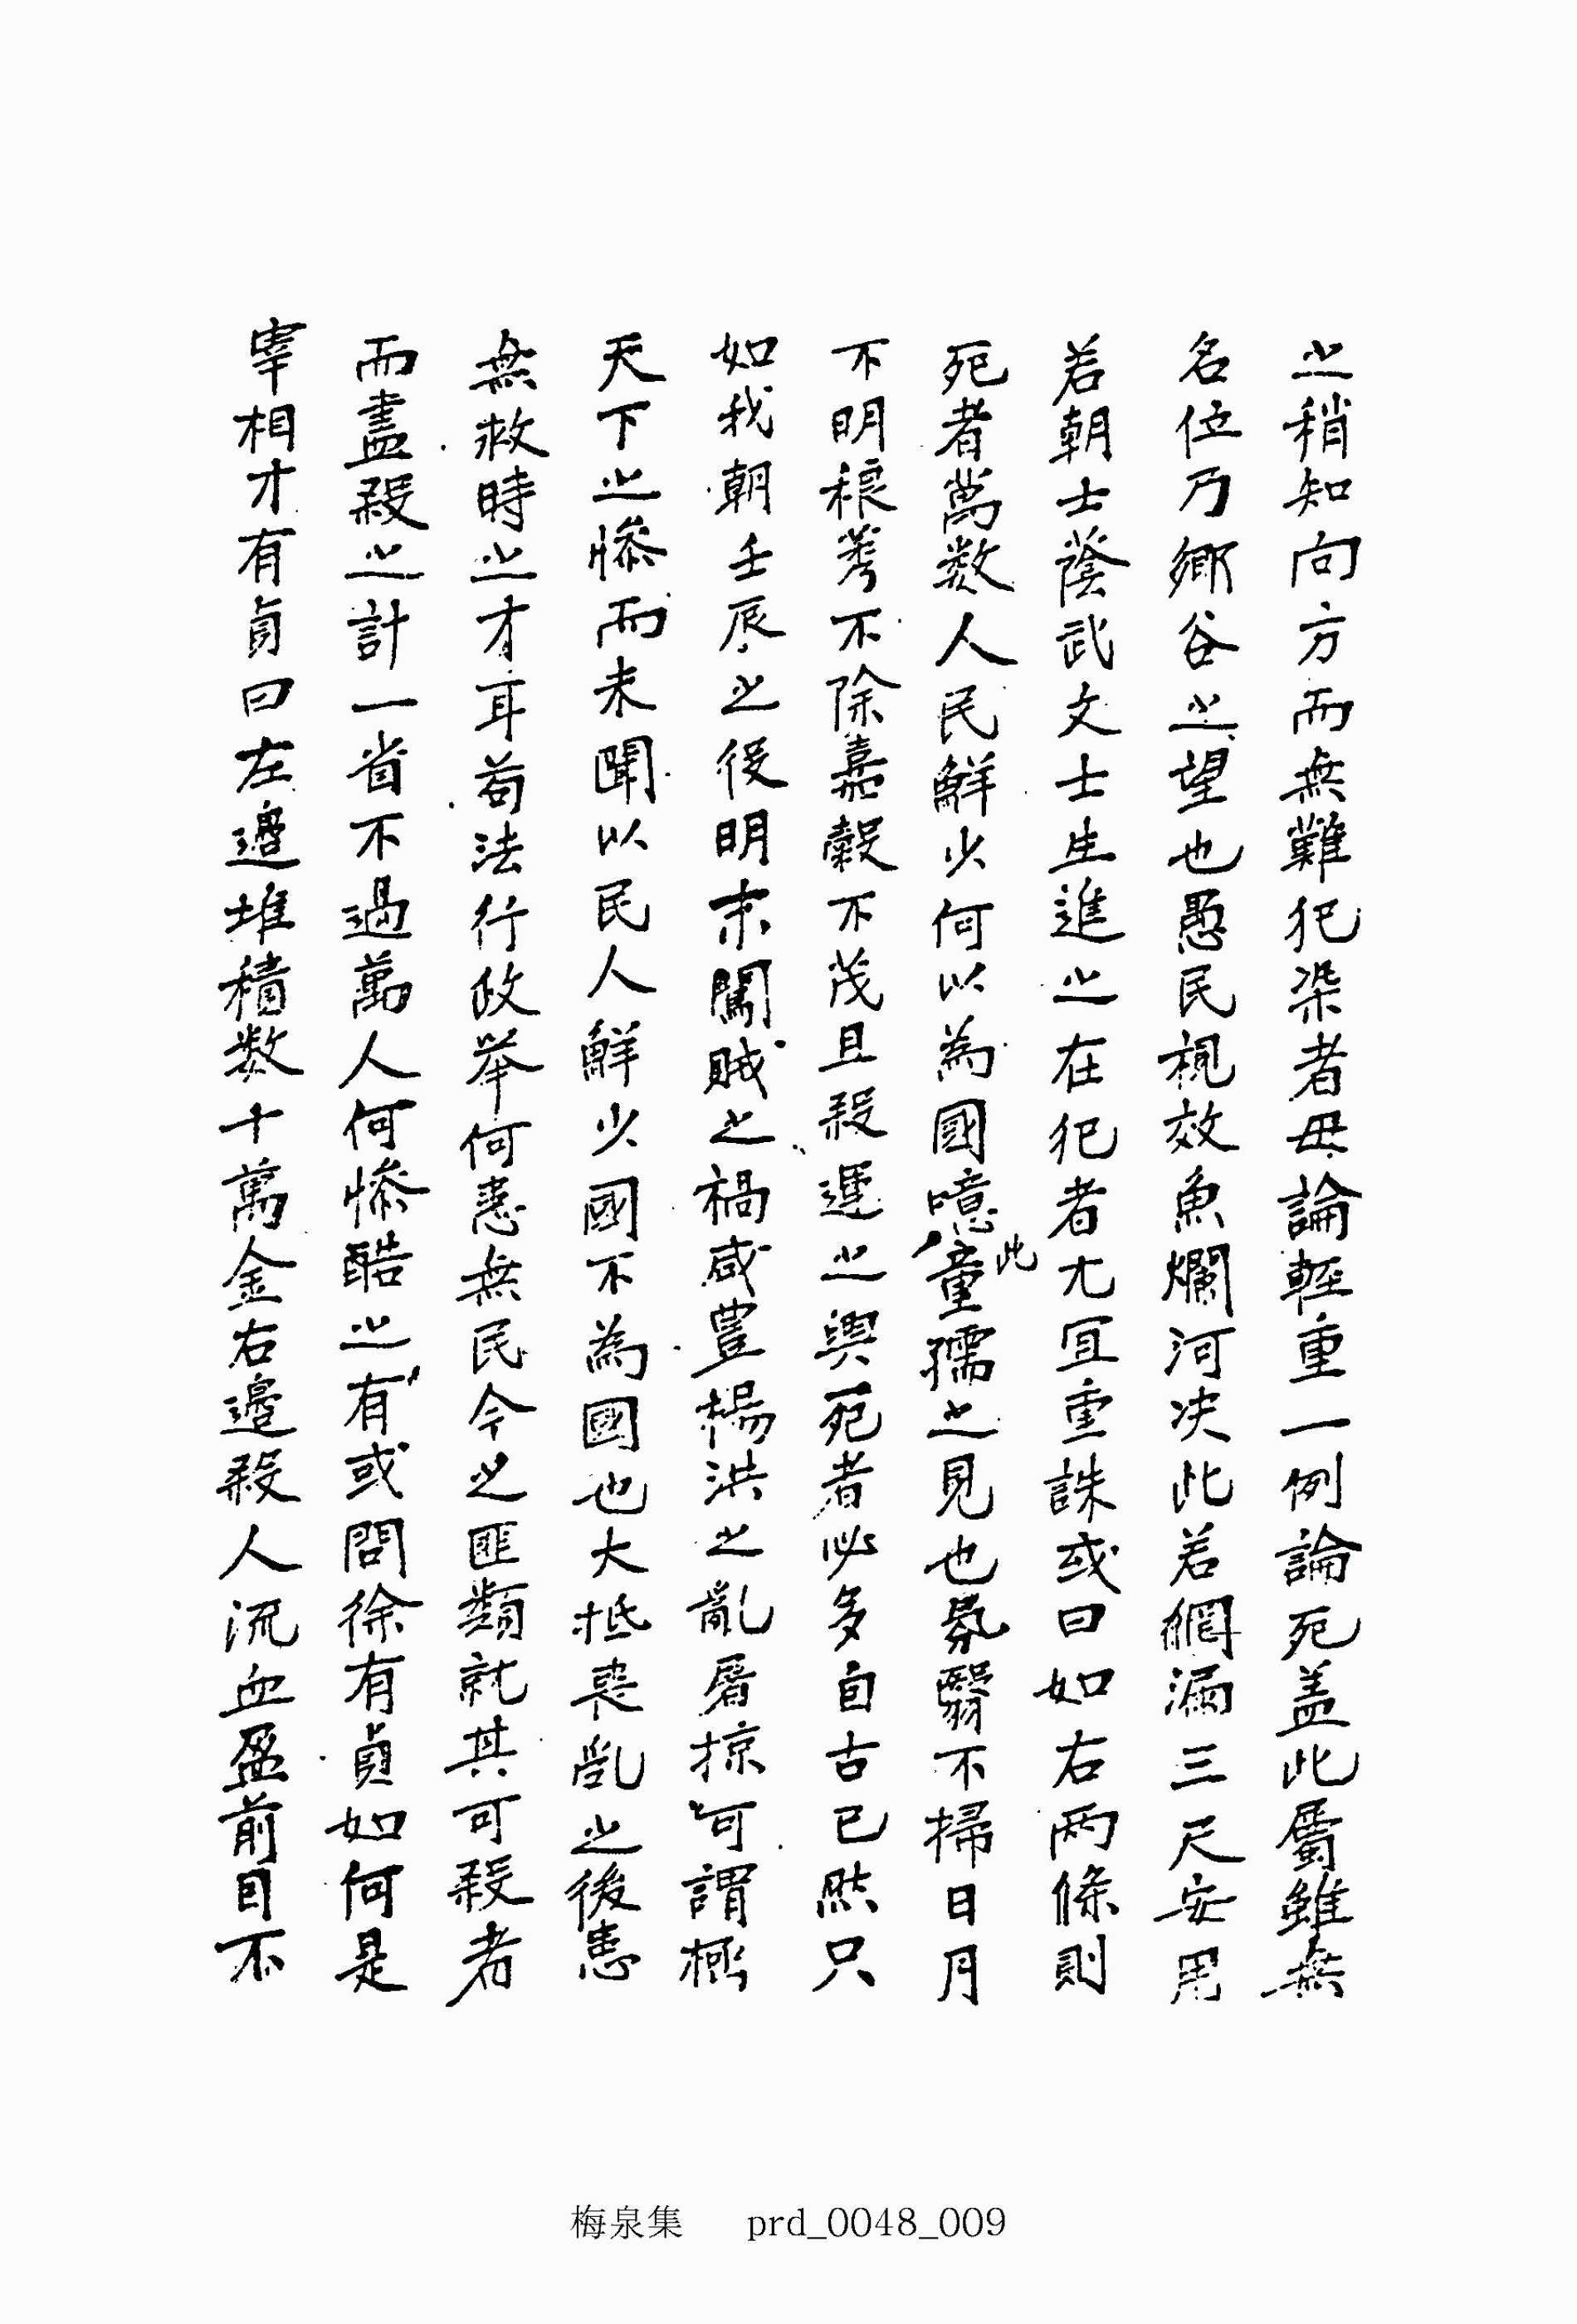 之稍知向方而無難犯染者毋論輕重一例論死盖此屬雖無
名位乃鄉谷之望也愚民視效魚爛河决此若網漏三尺安用
若朝士蔭武文士生進之在犯者尤宜重誅或曰如右两條則
死者萬数人民鮮少何以為國噫此童孺之見也氛翳不掃日月
不明稂莠不除嘉穀不茂且殺運之興死者必多自古已然只
如我朝壬辰之後明末闖賊之禍咸豊楊洪之亂屠掠可謂極
天下之慘而未聞以民人鮮少國不為國也大抵喪乱之後患
無救時之才耳苟法行政举何患無民今之匪類就其可殺者
而盡殺之計一省不過萬人何慘酷之有或問徐有貞如何是
宰相才有貞曰左邊堆積数十萬金右邊殺人流血盈前目不
梅泉集 prd_0048_009